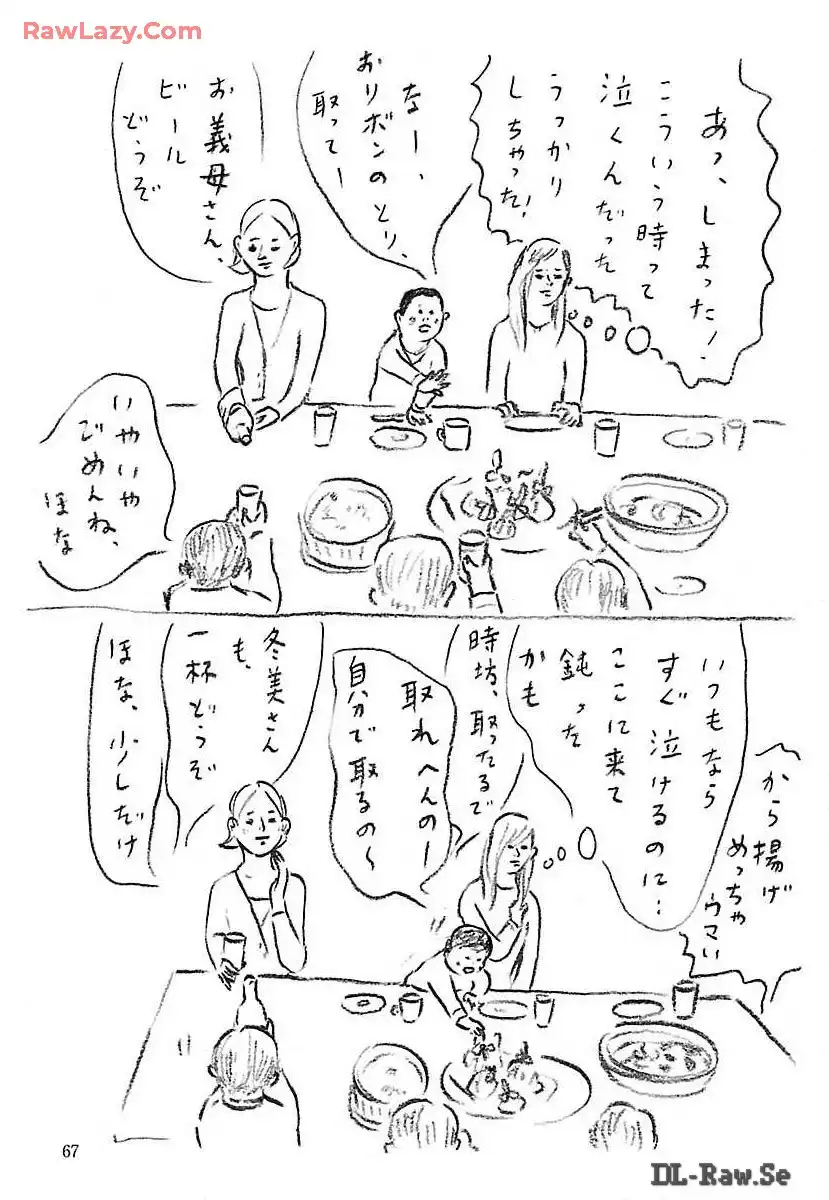 RawLazy.Com
あっ、しまった！
こういう時って
泣くんだった
うっかり
しちゃった！
なー、
おリボンのとり、
取ってー
お義母さん、
ビール
どうぞ
いやいや
ごめんね、
ほな
から揚げ
めっちゃ
ウマい
いつもなら
すぐ泣けるのに…
ここに来て
鈍った
かも
時坊、取ったるで
取れへんのー
自分で取るの〜
冬美さん
も、
一杯どうぞ
ほな、少しだけ
67
DL-Raw.Se